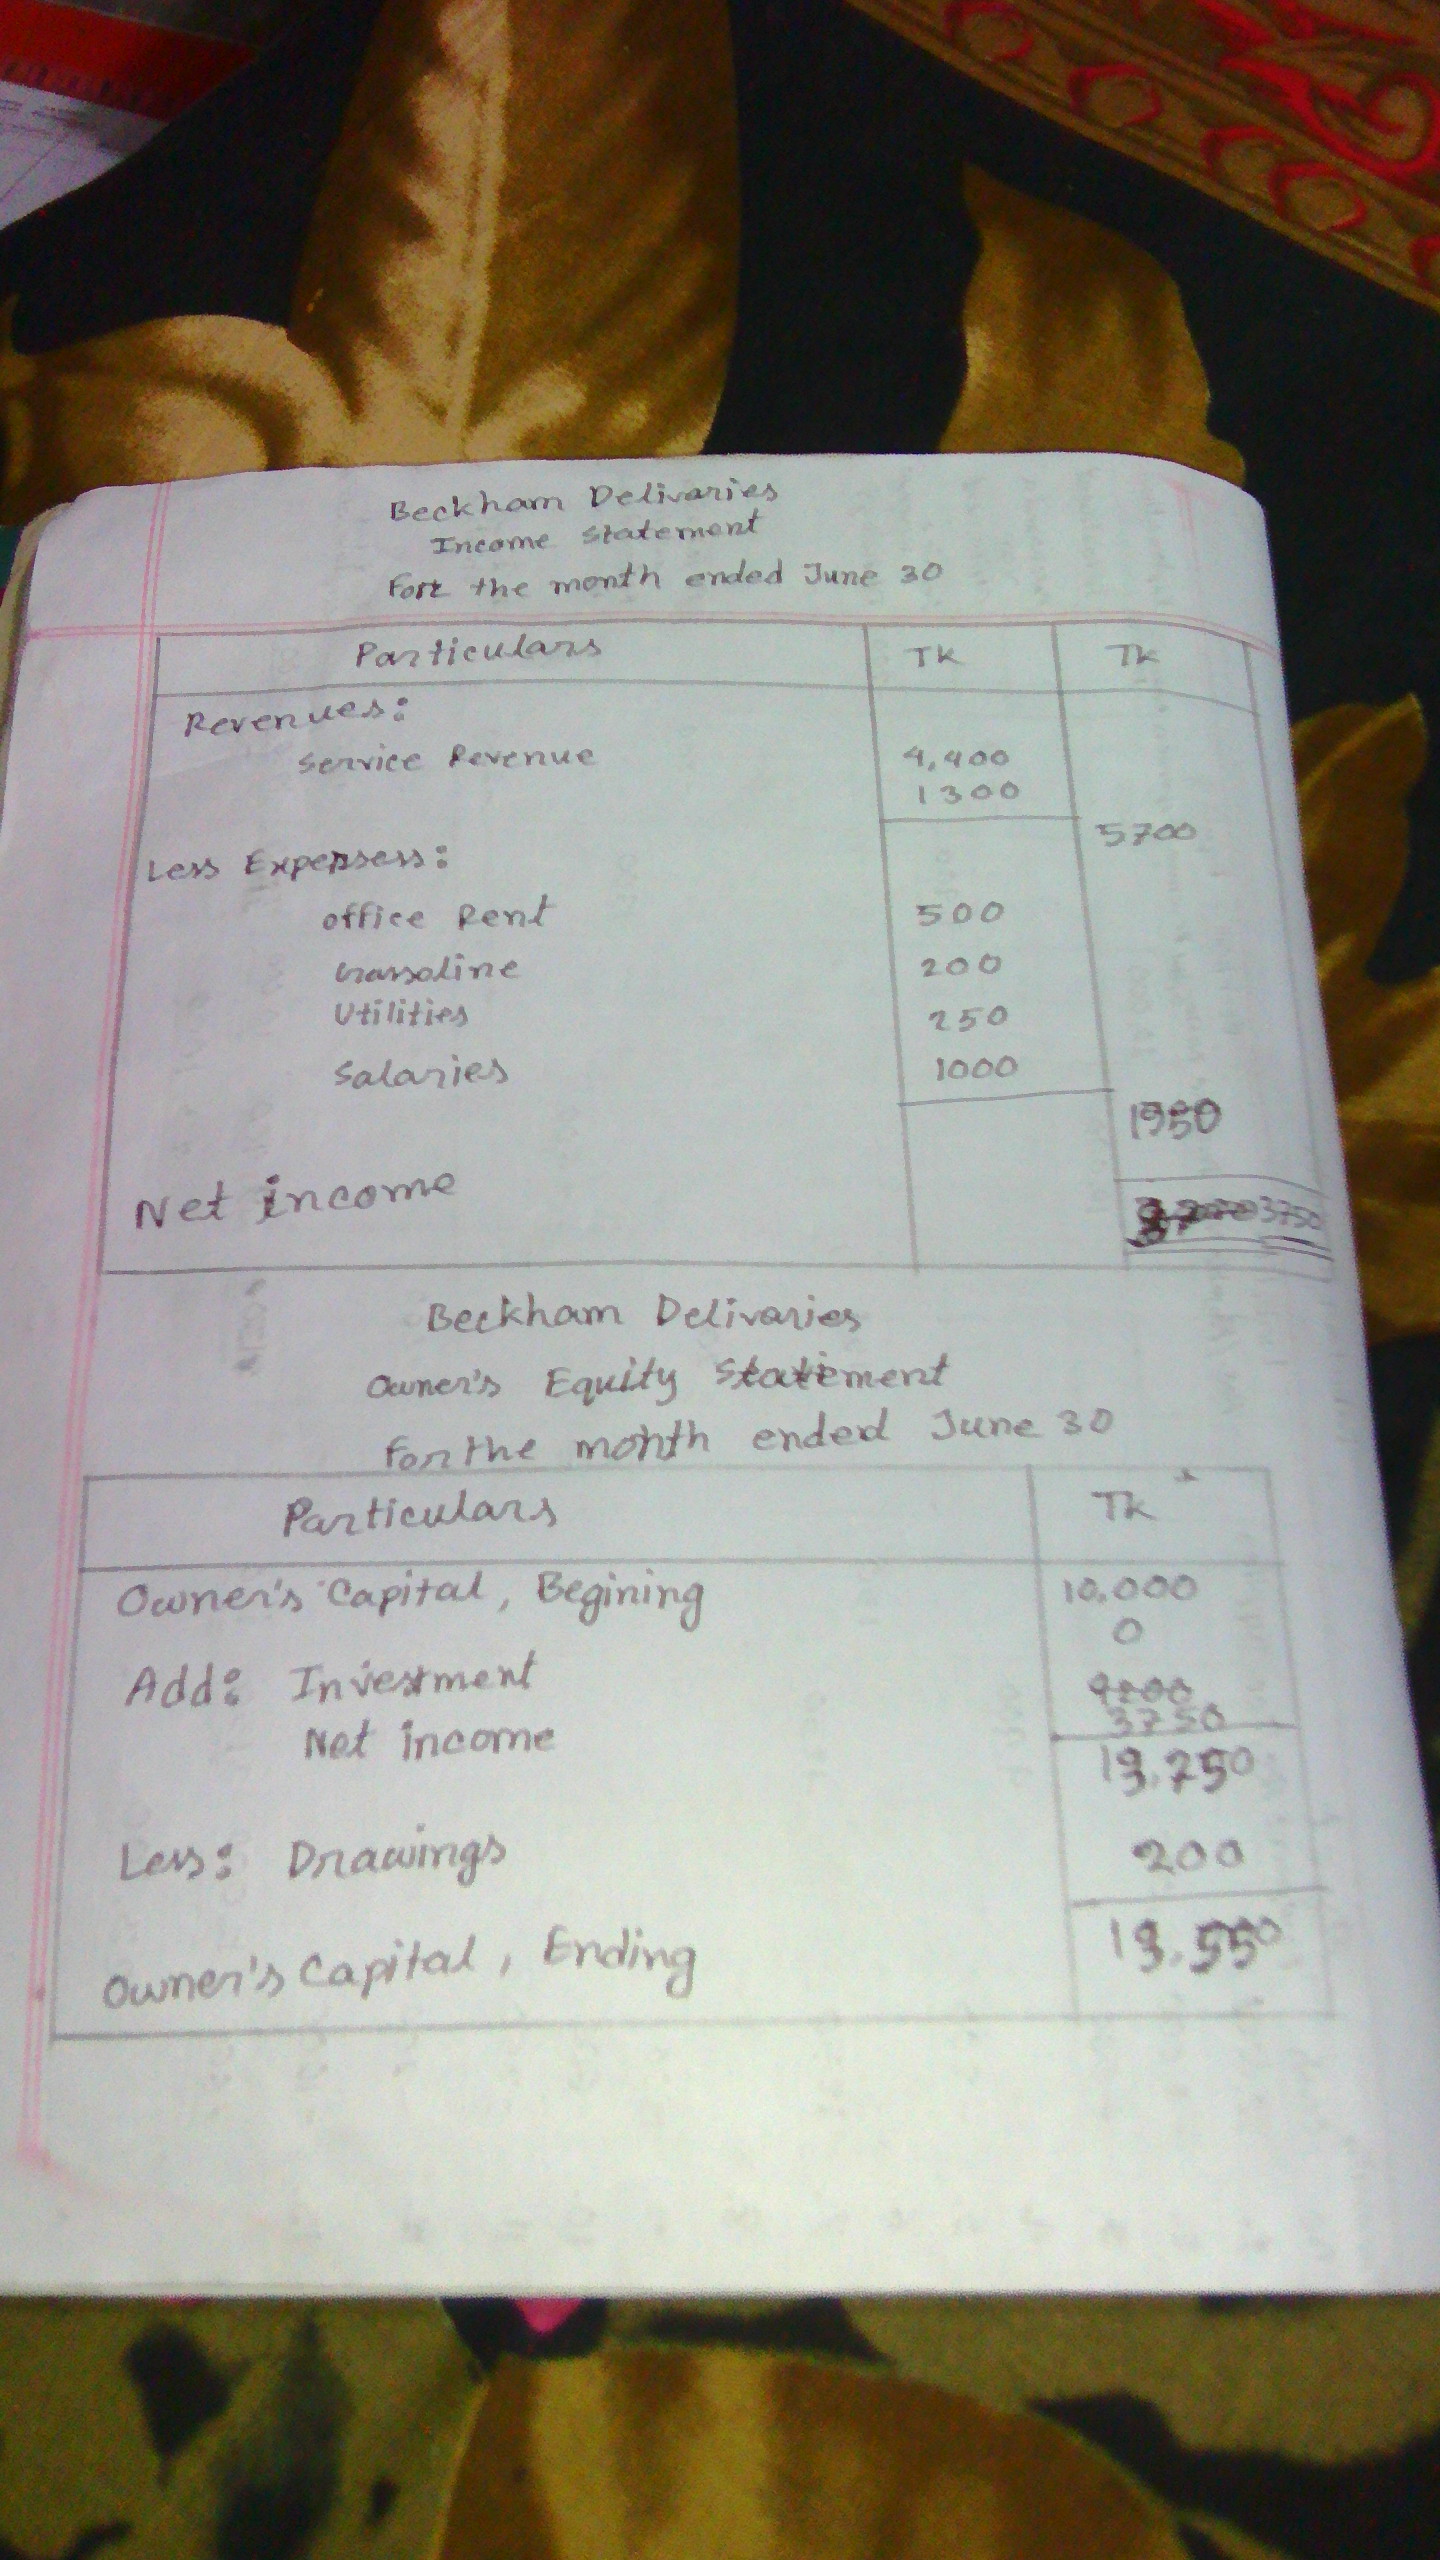 Beckham Delivaries
Income Statement
For the month ended June 30
Particulars TK TK
Revenues:
Service Revenue 4,400
1300
5700
Less Expensess:
office Rent 500
Gassoline 200
Utilities 250
Salaries 1000
1950
Net income 3750
Beckham Delivaries
Owner's Equity Statement
For the month ended June 30
Particulars TK
Owner's Capital, Begining 10,000
0
Add: Investment
Net income 3750
13,750
Less: Drawings 200
Owner's Capital, Ending 13,550